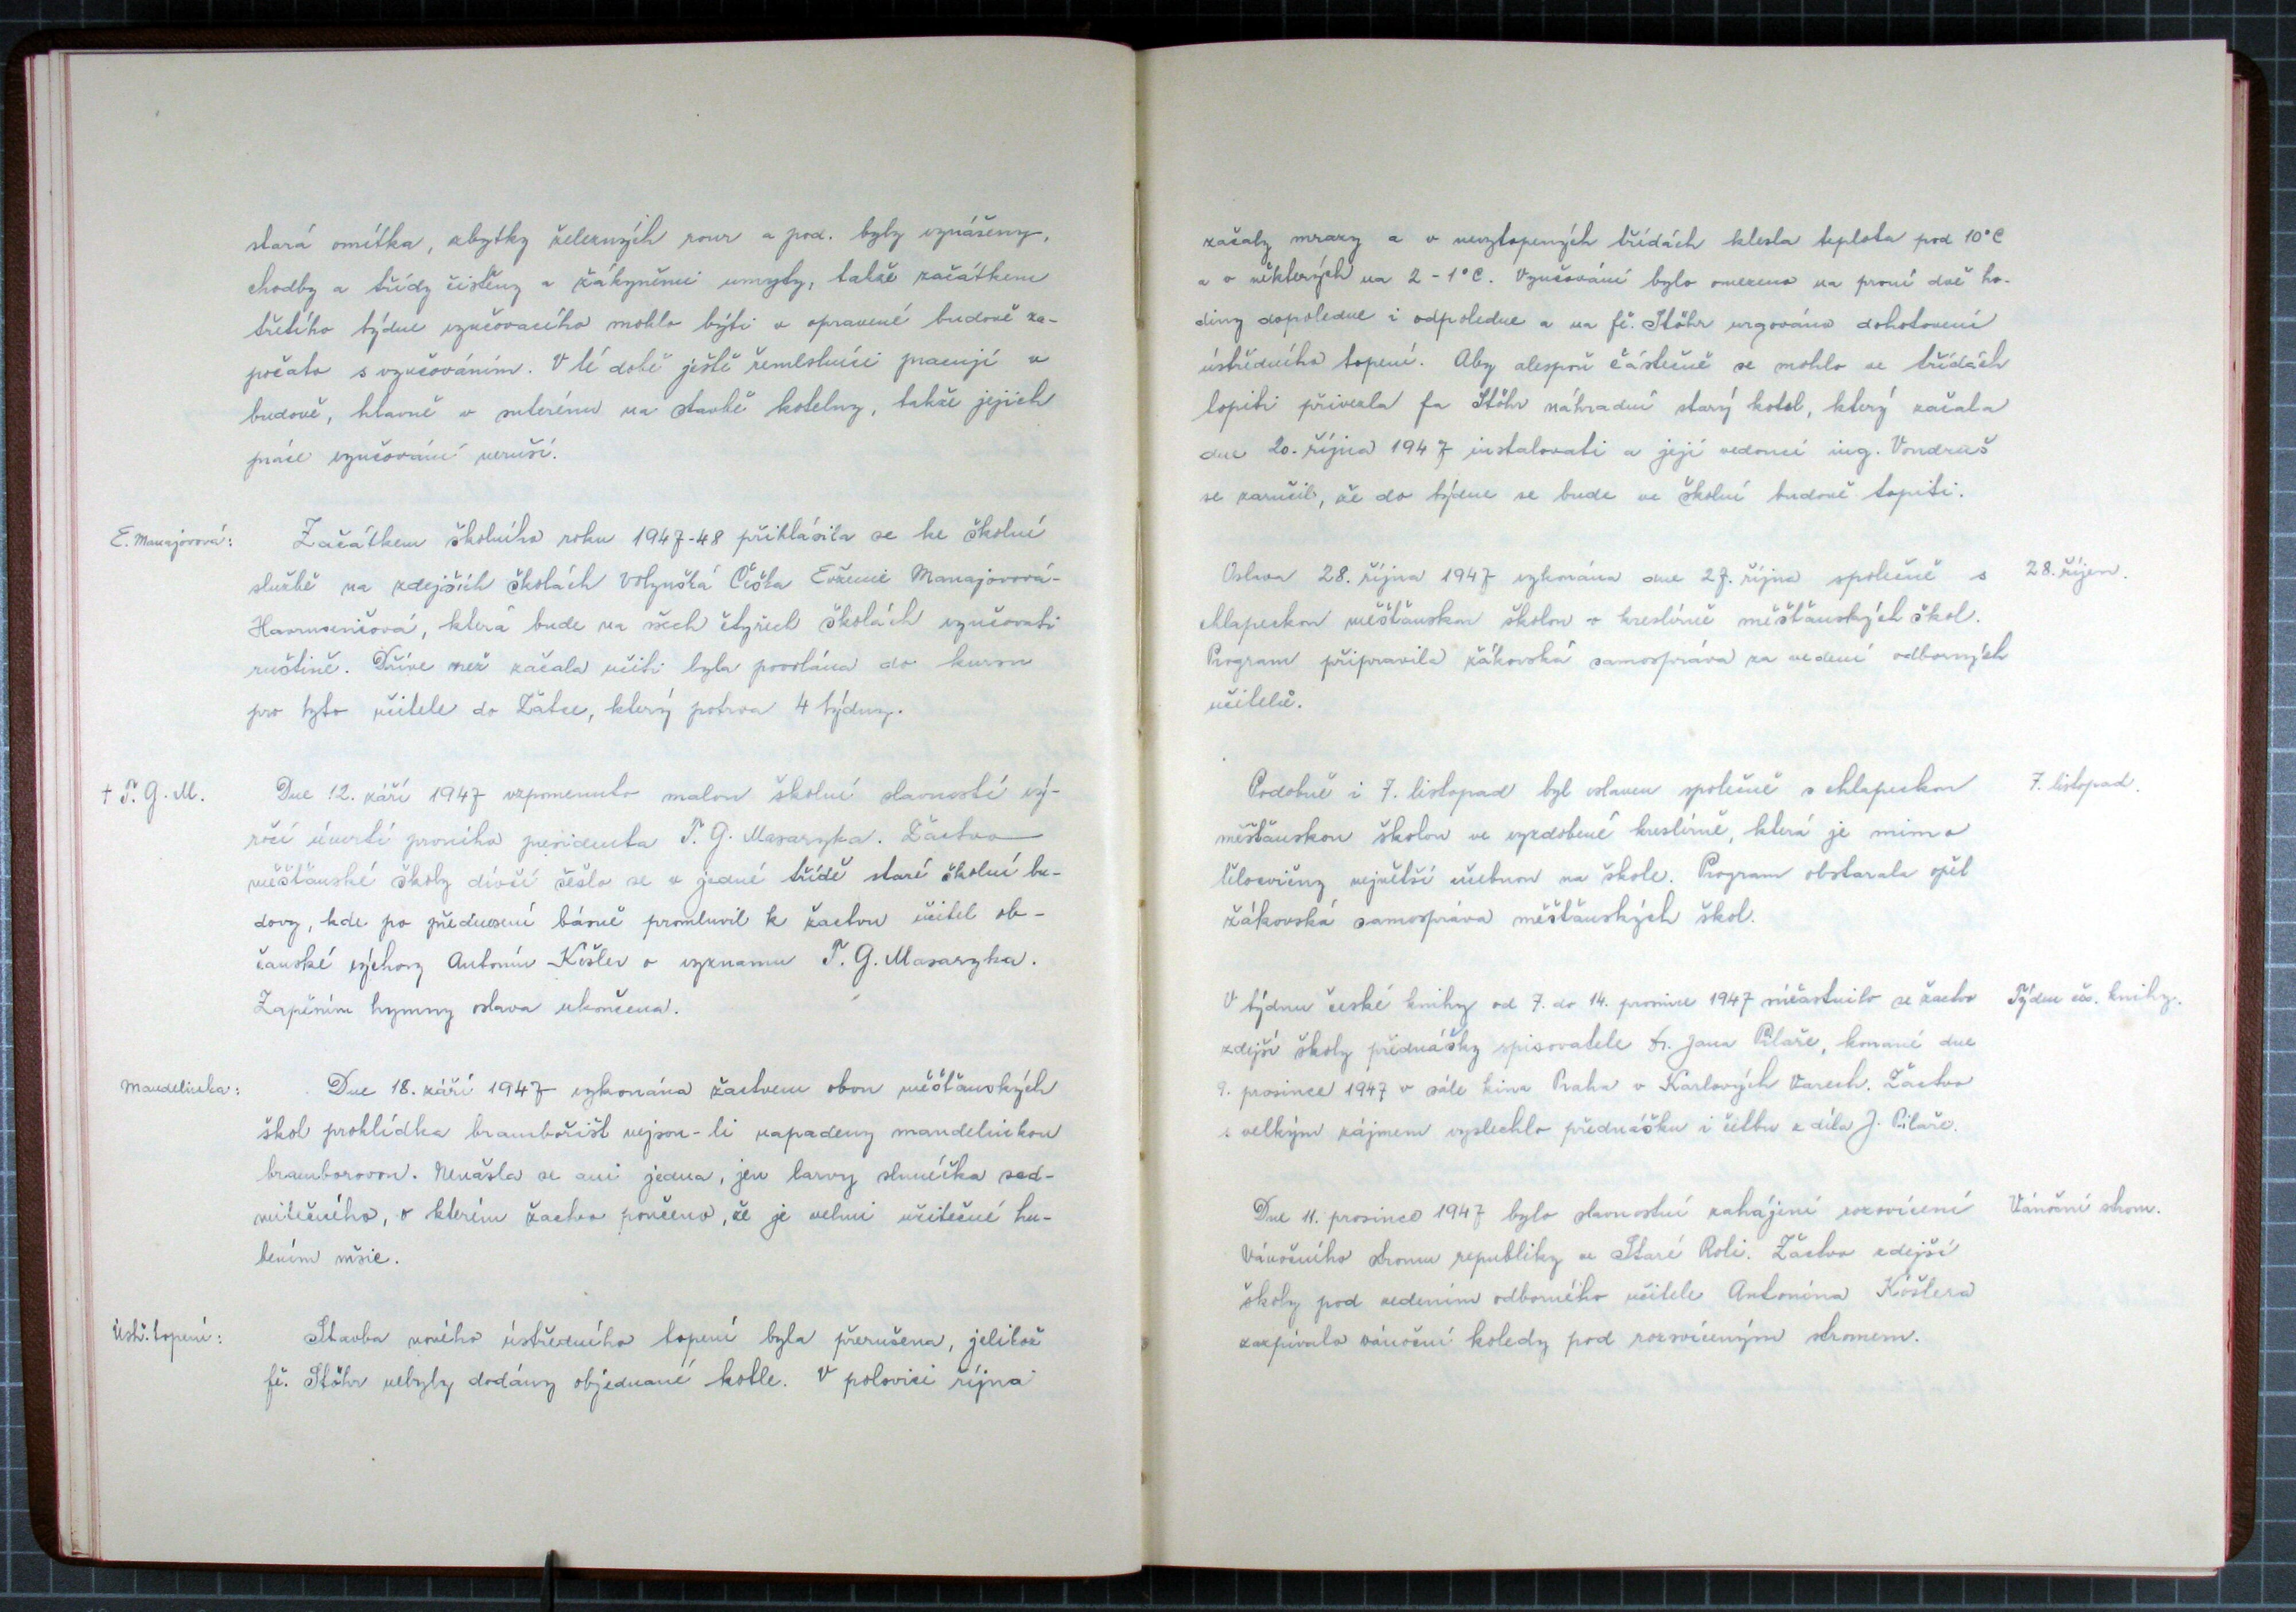 stará omítka, zbytky železných rour a pod. byly vynášeny,
chodby a třídy čistěny a žákyněmi umyty, takže začátkem
třetího týdne vyučovacího mohlo býti v opravené budově za-
počato s vyučováním. V té době ještě řemeslníci pracují v
budově, hlavně v suterénu na stavbě kotelny, takže jejich
práce vyučování neruší.
E. Manajovová: Začátkem školního roku 1947-48 přihlásila se ke školní
službě na zdejších školách volyňská Češka Evženie Manajovová-
která bude na všech čtyřech školách vyučovati
ruštině. Dříve než začala učiti byla povolána do kursu
pro tyto učitele do Žatce, který potrva 4 týdny.
† T. G. M. Dne 12. září 1947 vzpomenuto malou školní slavností vý-
ročí úmrtí prvního presidenta T. G. Masaryka. Žactvo
měšťanské školy dívčí sešlo se v jedné třídě staré školní bu-
dovy, kde po přednesení básně promluvil k žactvu učitel ob-
čanské výchovy Antonín Köšler o významu T. G. Masaryka.
Zapěním hymny oslava ukončena.
Mandelinka: Dne 18. září 1947 vykonána žactvem obou měšťanských
škol prohlídka bramborišť nejsou-li napadeny mandelinkou
bramborovou. Nenašla se ani jedna, jen larvy slunéčka sed-
mitečného, o kterém žactvo poučeno, že je velmi užitečné hu-
bením mšic.
Ústř. topení: Stavba nového ústředního topení byla přerušena, jelikož
fě. Stöhr nebyly dodány objednané kotle. V polovici října
začaly mrazy a v nevytopených třídách klesla teplota pod 10°C
a v některých na 2-1°C. Vyučování bylo omezeno na první dvě ho-
diny dopoledne i odpoledne a na fě. Stöhr urgováno dohotovení
ústředního topení. Aby alespoň částečně se mohlo ve třídách
topiti přivezla fa Stöhr náhradní starý kotel, který začala
dne 20. října 1947 instalovati a její vedoucí ing. Vondraš
se zaručil, že do týdne se bude ve školní budově topiti.
Oslava 28. října 1947 vykonána dne 27. října společně s 28. říjen.
chlapeckou měšťanskou školou v kreslírně měšťanských škol.
Program připravila žákovská samospráva za vedení odborných
učitelů.
Podobně i 7. listopad byl oslaven společně s chlapeckou 7. listopad.
měšťanskou školou ve vyzdobené kreslírně, která je mimo
tělocvičny největší učebnou na škole. Program obstarala opět
žákovská samospráva měšťanských škol.
V týdnu české knihy od 7. do 14. prosince 1947 súčastnilo se žactvo Týden čes. knihy.
zdejší školy přednášky spisovatele Dr. Jana Pilaře, konané dne
9. prosince 1947 v sále kina Praha v Karlových Varech. Žactvo
s velkým zájmem vyslechlo přednášku i četbu z díla J. Pilaře.
Dne 11. prosince 1947 bylo slavnostní zahájení rozsvícení Vánoční strom.
Vánočního stromu republiky ve Staré Roli. Žactvo zdejší
školy pod vedením odborného učitele Antonína Köšlera
zazpívalo vánoční koledy pod rozsvíceným stromem.